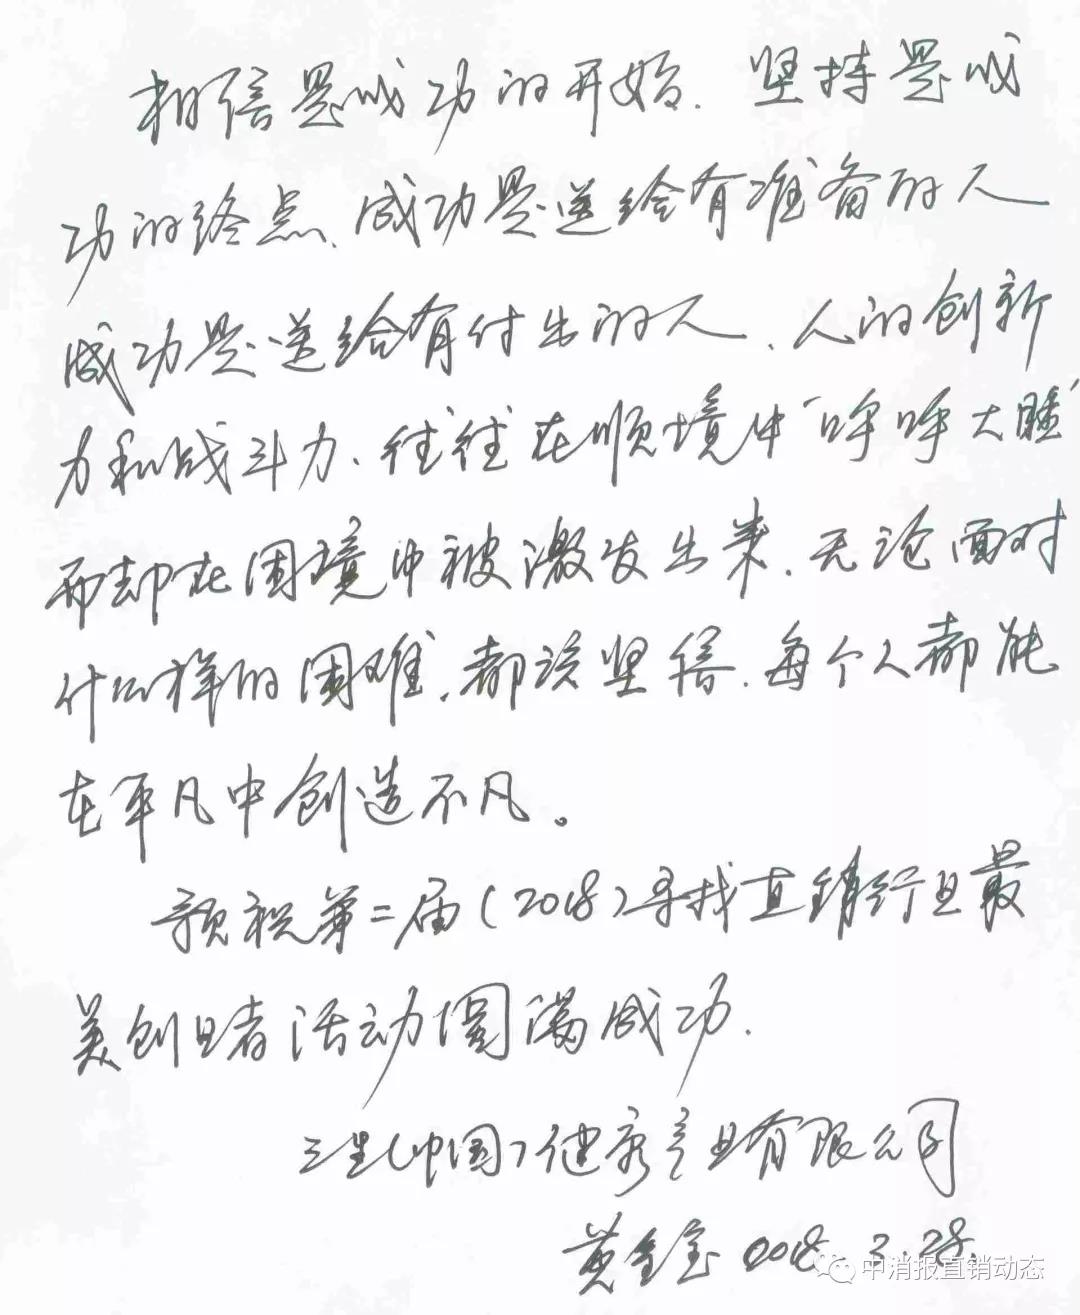 相信是成功的开始、坚持是成
功的终点、成功是送给有准备的人
成功是送给有付出的人、人的创新
力和战斗力、往往在顺境中“呼呼大睡”
而却在困境中被激发出来、无论面对
什么样的困难、都该坚信、每个人都能
在平凡中创造不凡。
预祝第二届(2018)寻找直销行业最
美创业者活动圆满成功.
三生(中国)健康产业有限公司
黄金宝 2018.3.28.
中消报直销动态